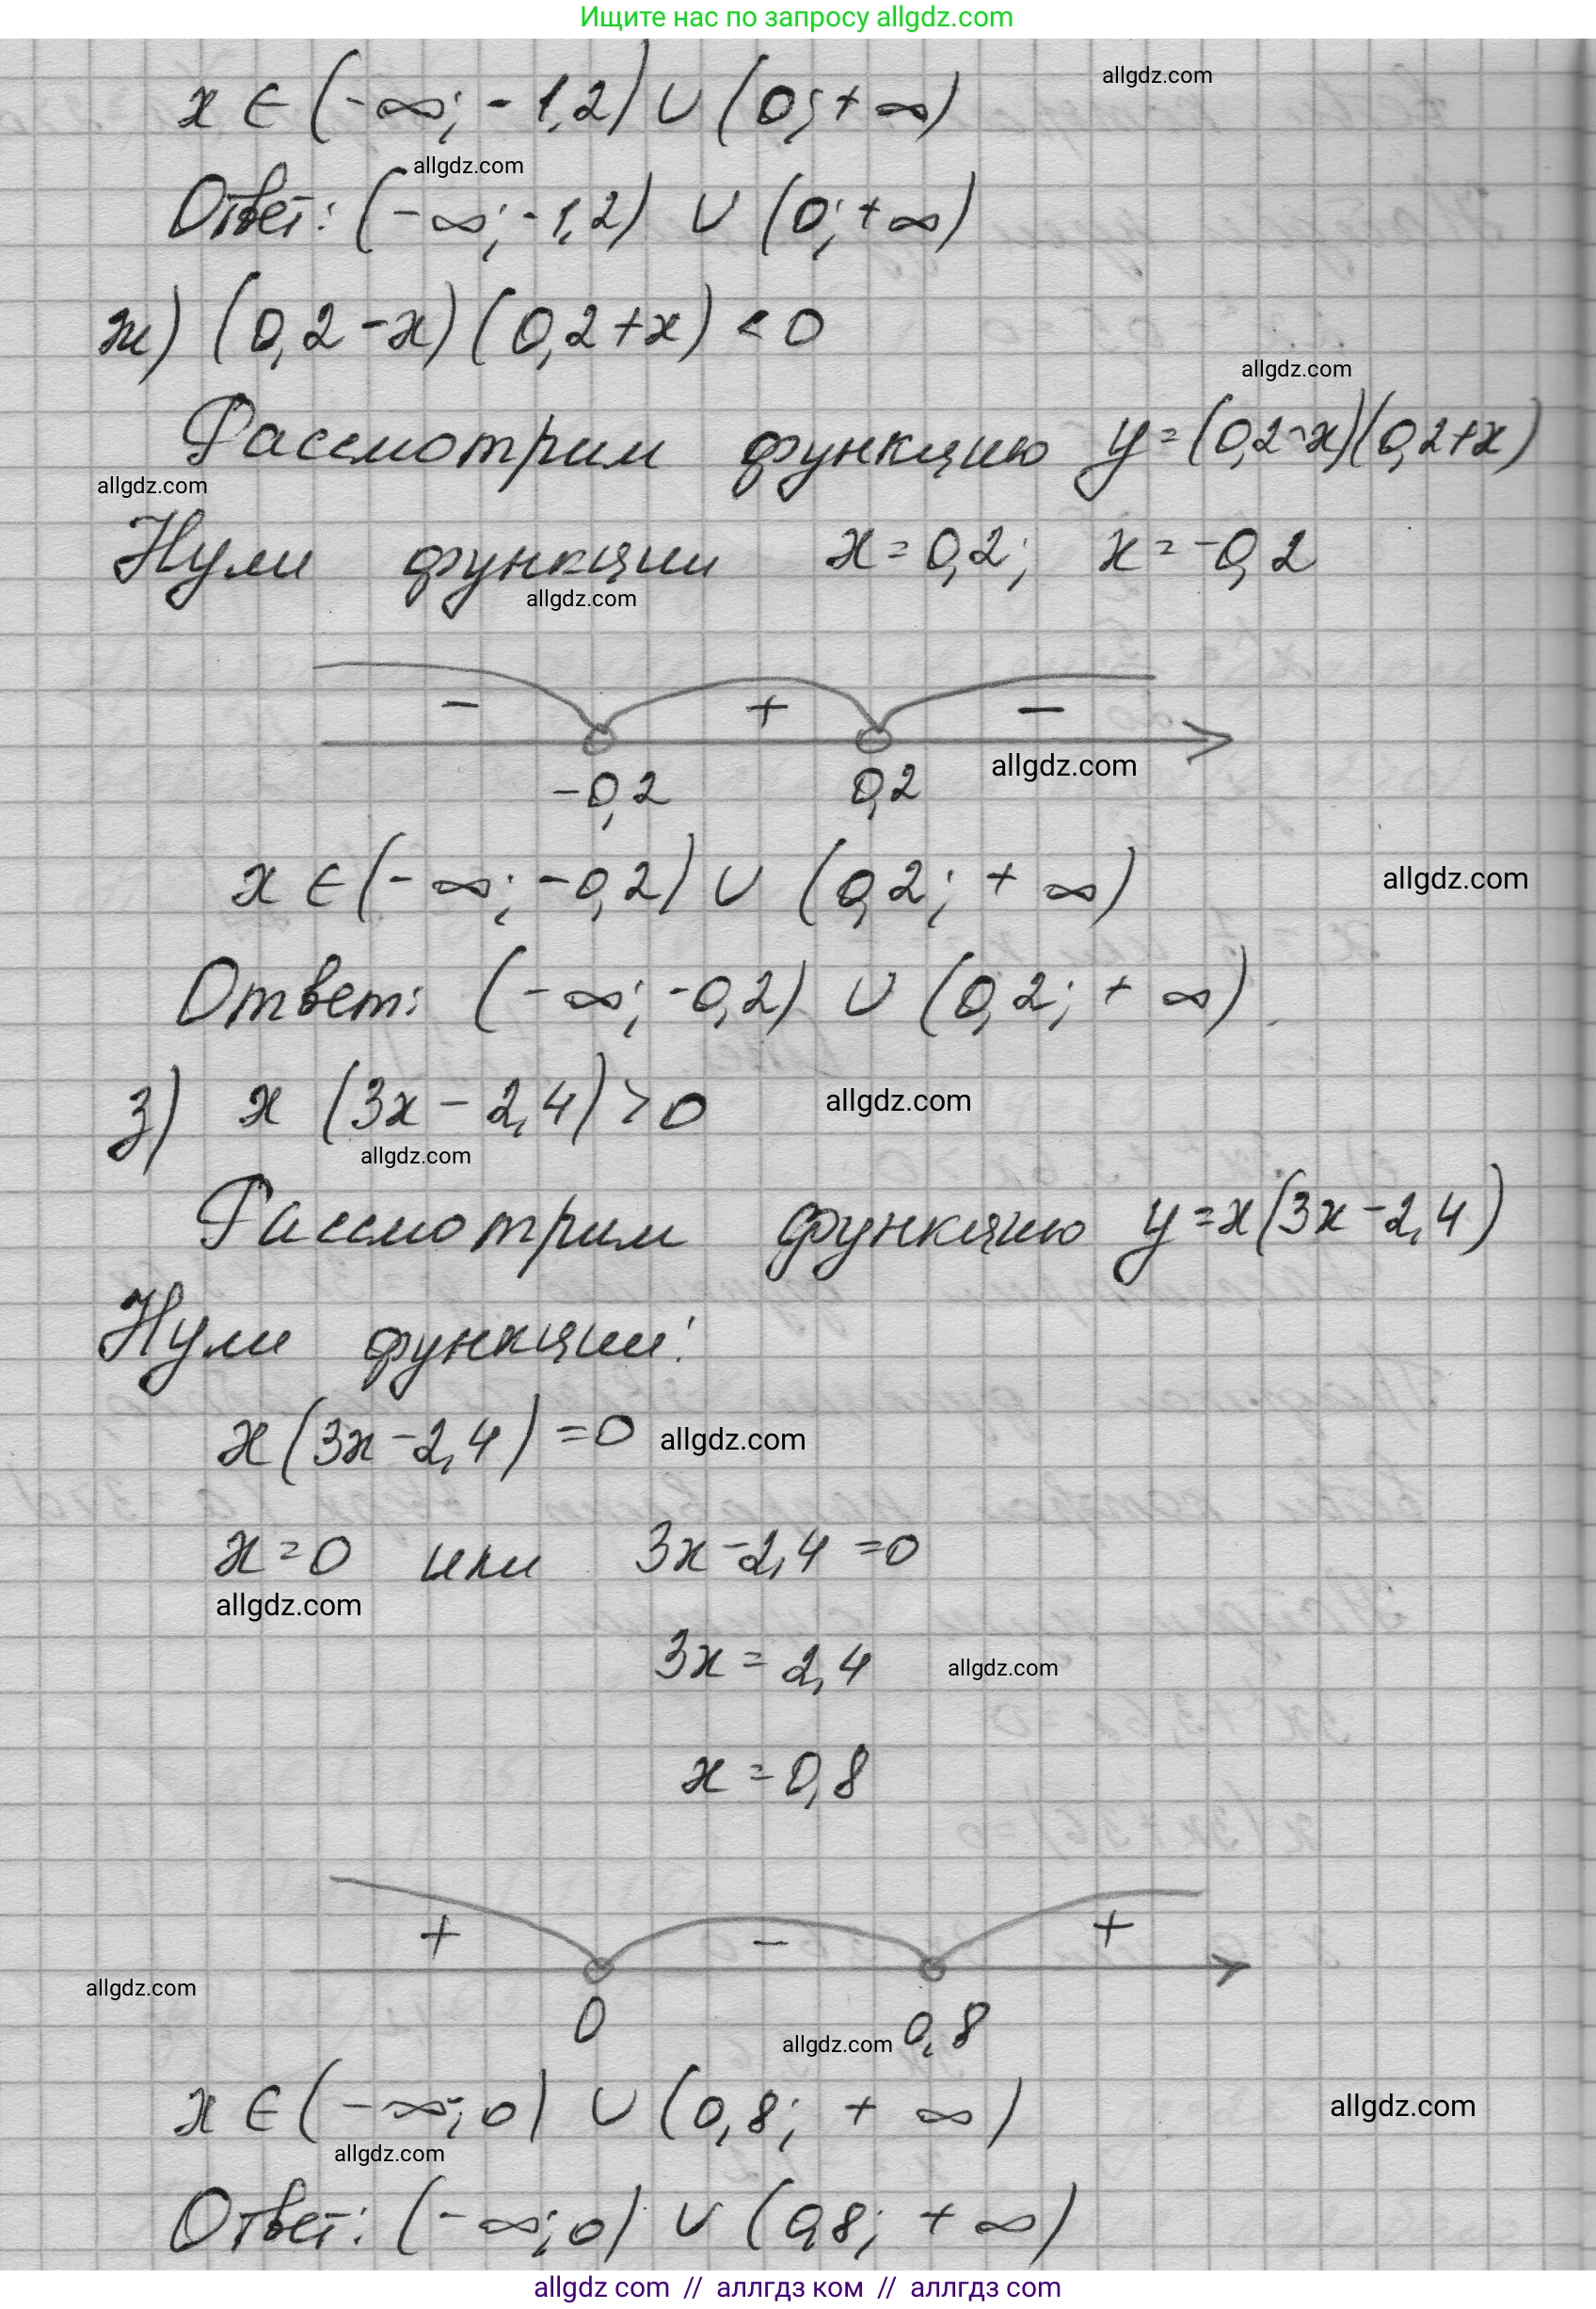 Ищите нас по запросу allgdz.com
allgdz.com
x ∈ (-∞; -1,2) ∪ (0; +∞)
allgdz.com
Ответ: (-∞; -1,2) ∪ (0; +∞)
ж) (0,2-x)(0,2+x) < 0
allgdz.com
Рассмотрим функцию y=(0,2-x)(0,2+x)
allgdz.com
Нули функции x=0,2; x=-0,2
allgdz.com
- + -
allgdz.com
-0,2 0,2
x ∈ (-∞; -0,2) ∪ (0,2; +∞)
allgdz.com
Ответ: (-∞; -0,2) ∪ (0,2; +∞).
з) x (3x - 2,4) > 0
allgdz.com
allgdz.com
Рассмотрим функцию y=x(3x-2,4)
Нули функции:
x(3x-2,4)=0
allgdz.com
x=0 или 3x-2,4=0
allgdz.com
3x=2,4
allgdz.com
x=0,8
+ - +
allgdz.com
0 0,8
allgdz.com
x ∈ (-∞; 0) ∪ (0,8; +∞)
allgdz.com
allgdz.com
Ответ: (-∞; 0) ∪ (0,8; +∞)
allgdz com // аллгдз ком // аллгдз com